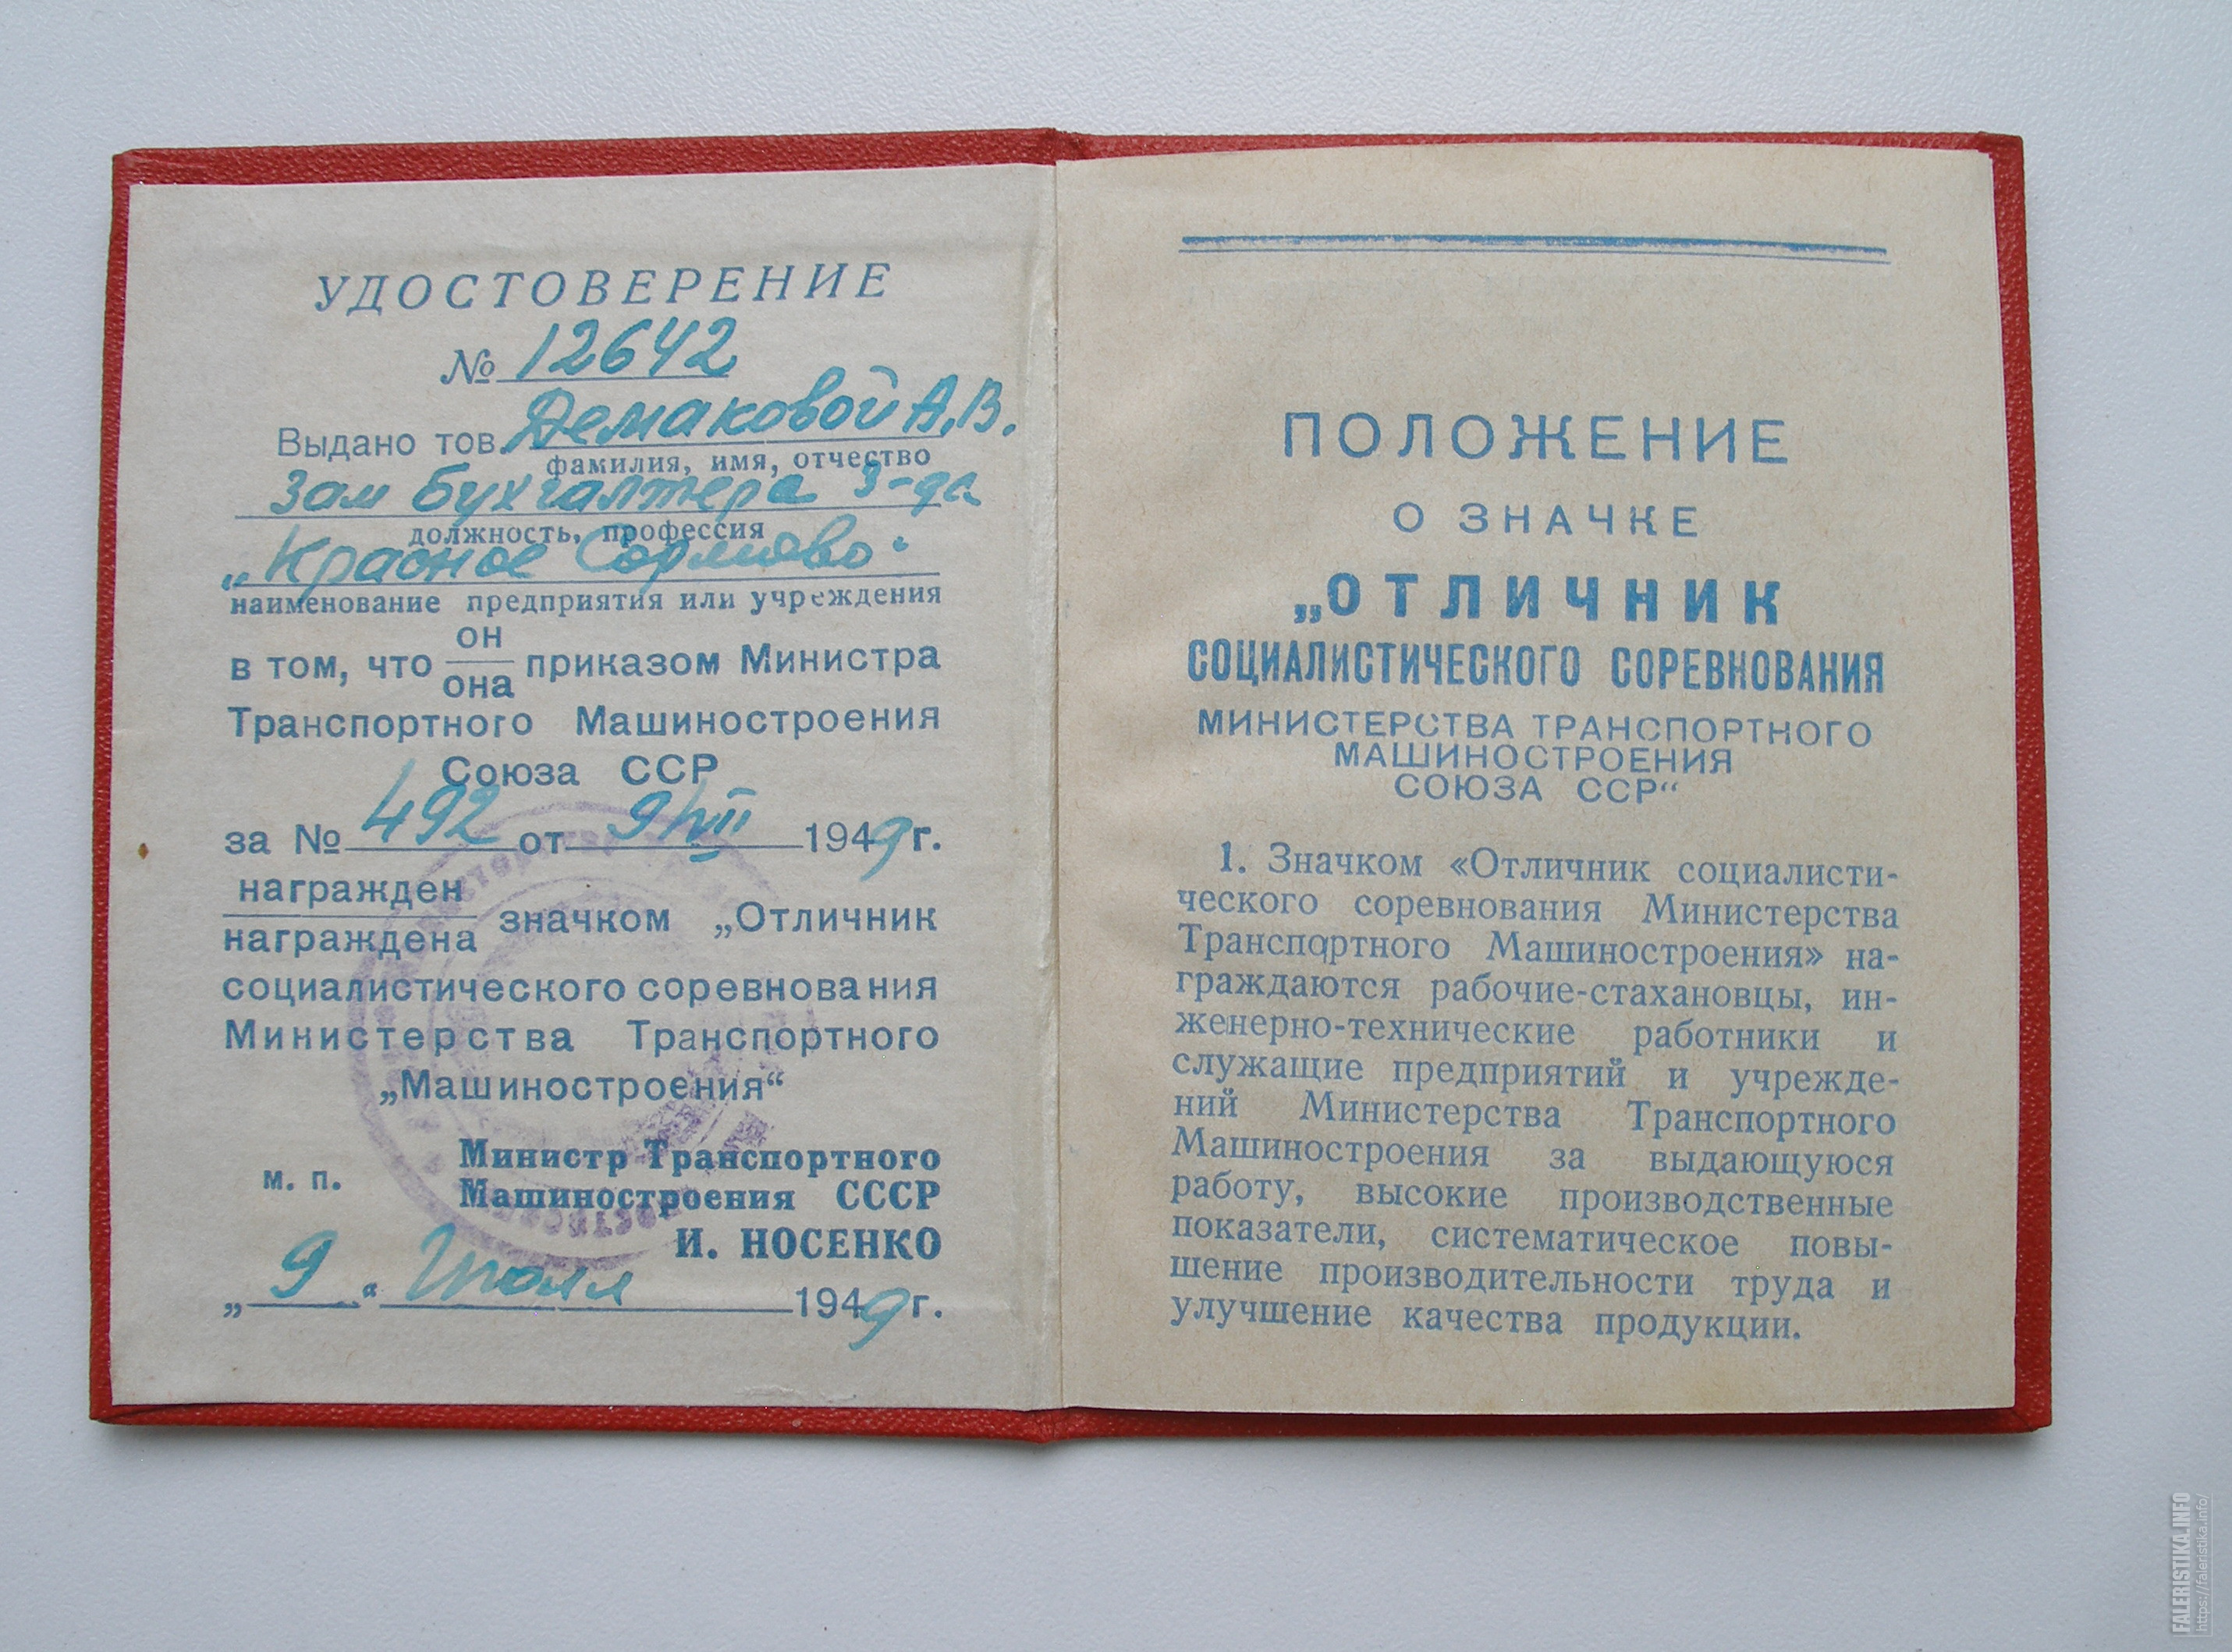 УДОСТОВЕРЕНИЕ
№ 12642
Выдано тов. Демаковой А.В.
фамилия, имя, отчество
зам бухгалтера з-да
должность, профессия
„Красное Сормово"
наименование предприятия или учреждения
он
в том, что приказом Министра
она
Транспортного Машиностроения
Союза ССР
за № 492 от 9/VII 1949 г.
награжден
значком „Отличник
награждена
социалистического соревнования
Министерства Транспортного
„Машиностроения“
Министр Транспортного
м. п.
Машиностроения СССР
И. НОСЕНКО
„ 9 “ Июля 1949 г.
ПОЛОЖЕНИЕ
О ЗНАЧКЕ
„ОТЛИЧНИК
СОЦИАЛИСТИЧЕСКОГО СОРЕВНОВАНИЯ
МИНИСТЕРСТВА ТРАНСПОРТНОГО
МАШИНОСТРОЕНИЯ
СОЮЗА ССР“
1. Значком «Отличник социалисти-
ческого соревнования Министерства
Транспортного Машиностроения» на-
граждаются рабочие-стахановцы, ин-
женерно-технические работники и
служащие предприятий и учрежде-
ний Министерства Транспортного
Машиностроения за выдающуюся
работу, высокие производственные
показатели, систематическое повы-
шение производительности труда и
улучшение качества продукции.
FALERISTIKA.INFO
https://faleristika.info/